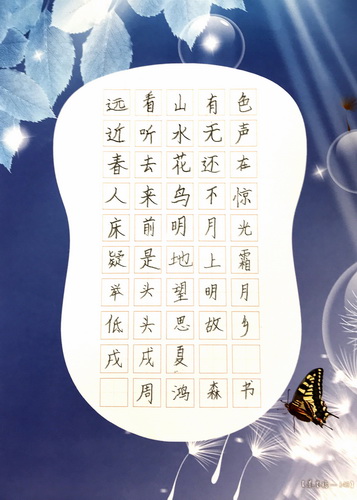 远看山有色
近听水无声
春去花还在
人来鸟不惊
床前明月光
疑是地上霜
举头望明月
低头思故乡
戊戌夏
周鸿森书